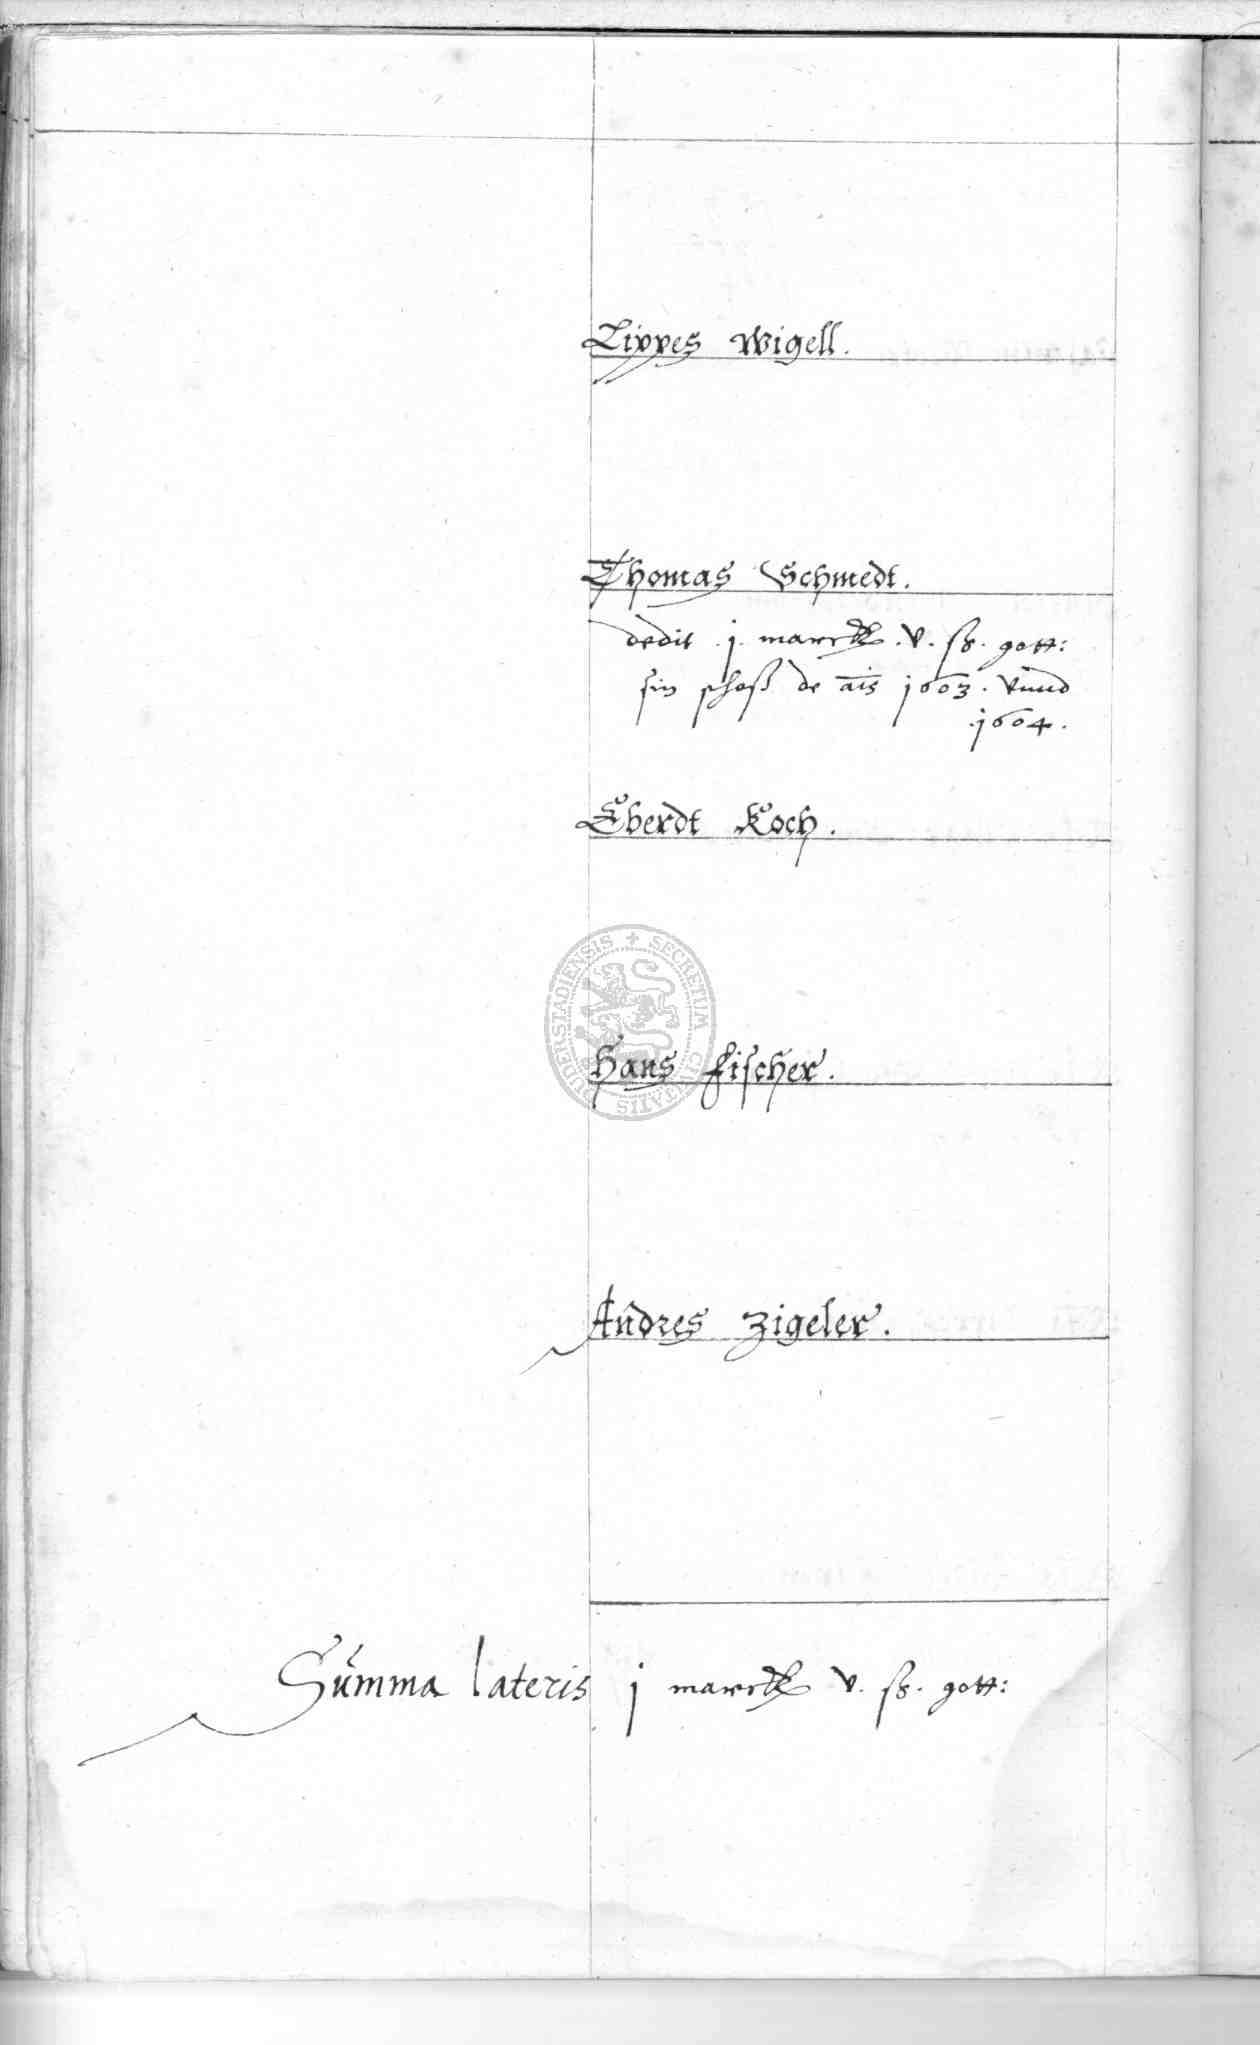 Lippes Wigell.
Thomas Schmedt.
dedit .j. marck .v. ß. gott:
sin schoß de ais 1603. vnnd
.1604.
Eberdt Koch.
SECRETUM CIVITATIS DUDERSTADIENSIS
Hans Fischer.
Andres Zigeler.
Summa lateris j marck v. ß. gott: